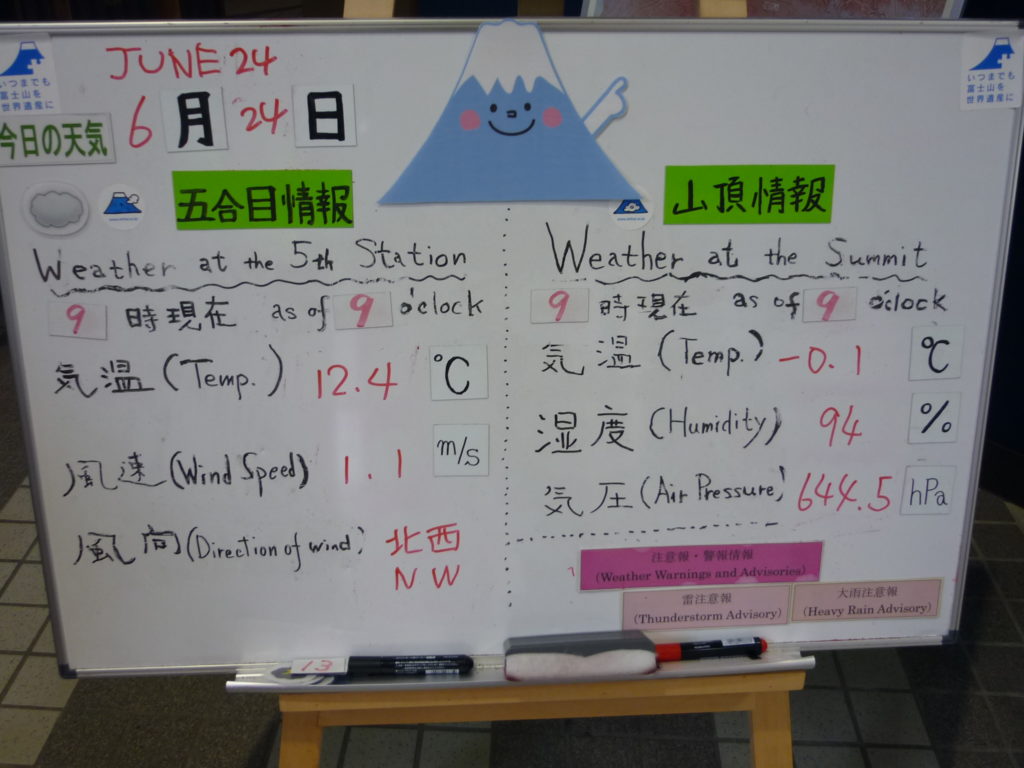 JUNE 24
6月24日
今日の天気
いつまでも
富士山を
世界遺産に
いつまでも
富士山を
世界遺産に
五合目情報
Weather at the 5th Station
9時現在 as of 9 o'clock
気温(Temp.) 12.4 ℃
風速(Wind Speed) 1.1 m/s
風向(Direction of wind) 北西
NW
山頂情報
Weather at the Summit
9時現在 as of 9 o'clock
気温(Temp.) -0.1 ℃
湿度(Humidity) 94 %
気圧(Air Pressure) 644.5 hPa
注意報・警報情報
(Weather Warnings and Advisories)
雷注意報
(Thunderstorm Advisory)
大雨注意報
(Heavy Rain Advisory)
13